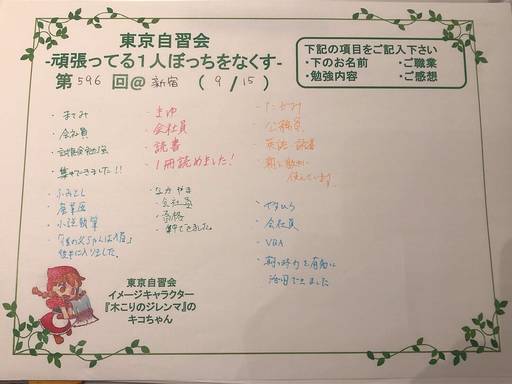 東京自習会
-頑張ってる1人ぼっちをなくす-
第 596 回@ 新宿 ( 9 / 15 )
下記の項目をご記入下さい
・下のお名前 ・ご職業
・勉強内容 ・ご感想
・まさみ
・会社員
・集中できました!!
・まゆ
・会社員
・読書
・1冊読めました!
・公務員
・英語 読書
・ふみとし
・産業医
・小説執筆
・なかやま
・会社員
・資格
・集中できました。
・やすひろ
・会社員
・VBA
・朝の時間を有効に
活用できました
東京自習会
イメージキャラクター
『木こりのジレンマ』の
キコちゃん